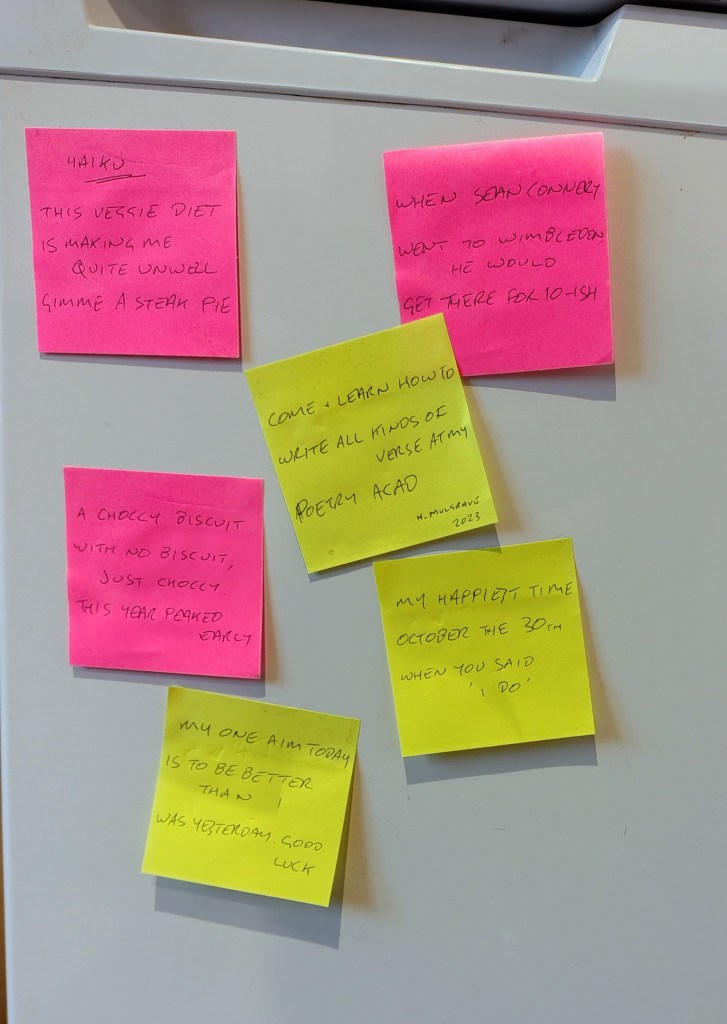 HAIKU
THIS VEGGIE DIET
IS MAKING ME
QUITE UNWELL
GIMME A STEAK PIE
WHEN SEAN CONNERY
WENT TO WIMBLEDON
HE WOULD
GET THERE FOR 10-ISH
COME + LEARN HOW TO
WRITE ALL KINDS OF
VERSE AT MY
POETRY ACAD
H. MULGRAVE
2023
A CHOCCY BISCUIT
WITH NO BISCUIT,
JUST CHOCCY.
THIS YEAR PEAKED
EARLY
MY HAPPIEST TIME
OCTOBER THE 30TH
WHEN YOU SAID
'I DO'
MY ONE AIM TODAY
IS TO BE BETTER
THAN I
WAS YESTERDAY. GOOD
LUCK